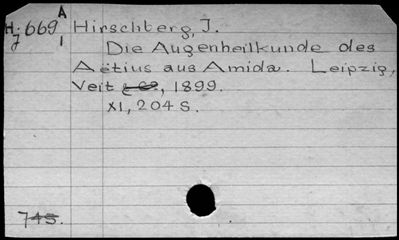 A
H: 669 Hirschberg, J.
7 1
Die Augenheilkunde des
Aëtius aus Amida. Leipzig,
Veit & Co, 1899.
XI, 204 S.
745.